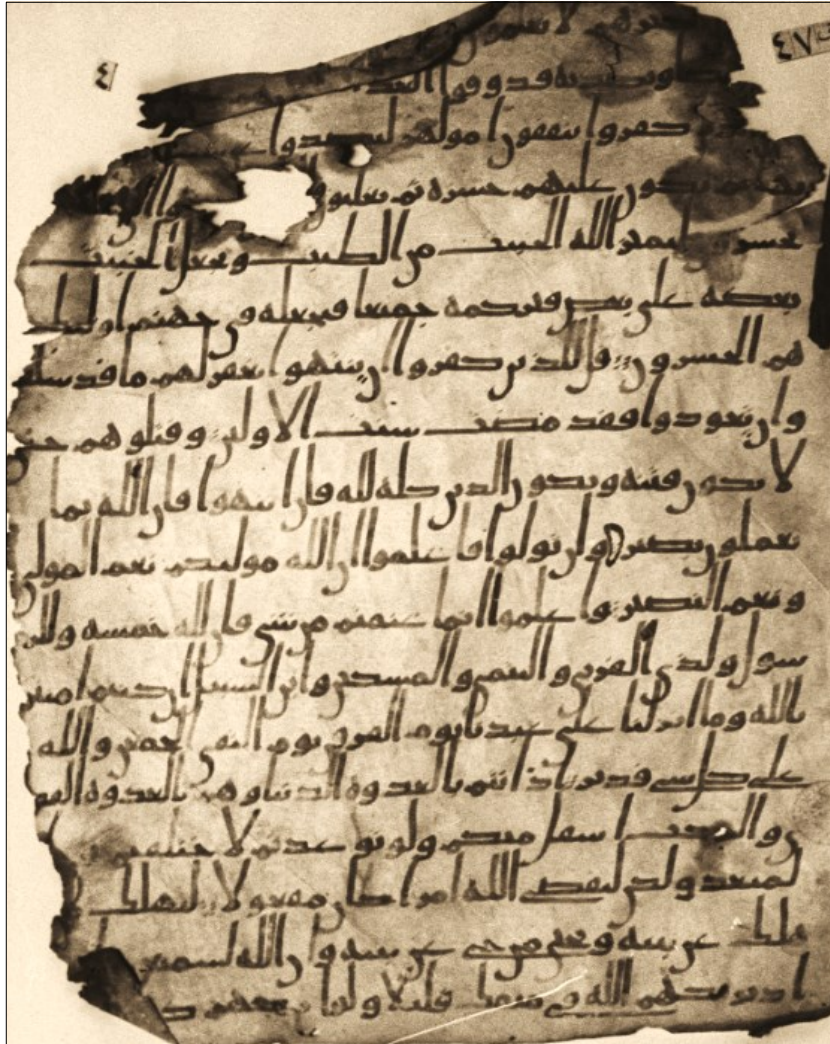 ٤
٤٧
كثرهم لا يعلمون
مكا وتصدية فذوقوا العذ
كفروا ينفقون امولهم ليصدوا
تكون عليهم حسرة ثم يغلبون
يحشرون ليميز الله الخبيث من الطيب ويجعل الخبيث
بعضه على بعض فيركمه جميعا فيجعله في جهنم اوليك
هم الخسرون قل للذين كفروا ان ينتهوا يغفر لهم ما قد سلف
وان يعودوا فقد مضت سنت الاولين وقتلوهم حتى
لا تكون فتنة ويكون الدين كله لله فان انتهوا فان الله بما
يعملون بصير وان تولوا فاعلموا ان الله موليكم نعم المولى
ونعم النصير واعلموا انما غنمتم من شي فان لله خمسه وللر
سول ولذي القربى واليتمى والمسكين وابن السبيل ان كنتم امنتم
بالله وما انزلنا على عبدنا يوم الفرقن يوم التقى الجمعن والله
على كل شي قدير اذ انتم بالعدوة الدنيا وهم بالعدوة القصو
ى والركب اسفل منكم ولو توعدتم لاختلفتم في
لميعد ولكن ليقضي الله امرا كان مفعولا ليهلك
هلك عن بينة ويحيى من حي عن بينة وان الله لسميع
اذ يريكهم الله في منمك قليلا ولو اريكهم ك